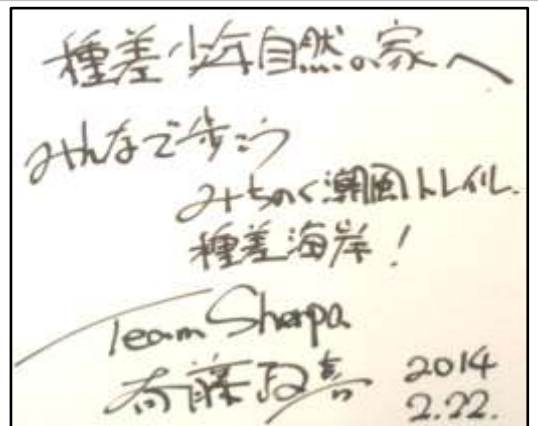 種差少年自然の家へ
みんなで歩こう
みちのく潮風トレイル
種差海岸!
Team Sherpa
斉藤政喜 2014
2.22.